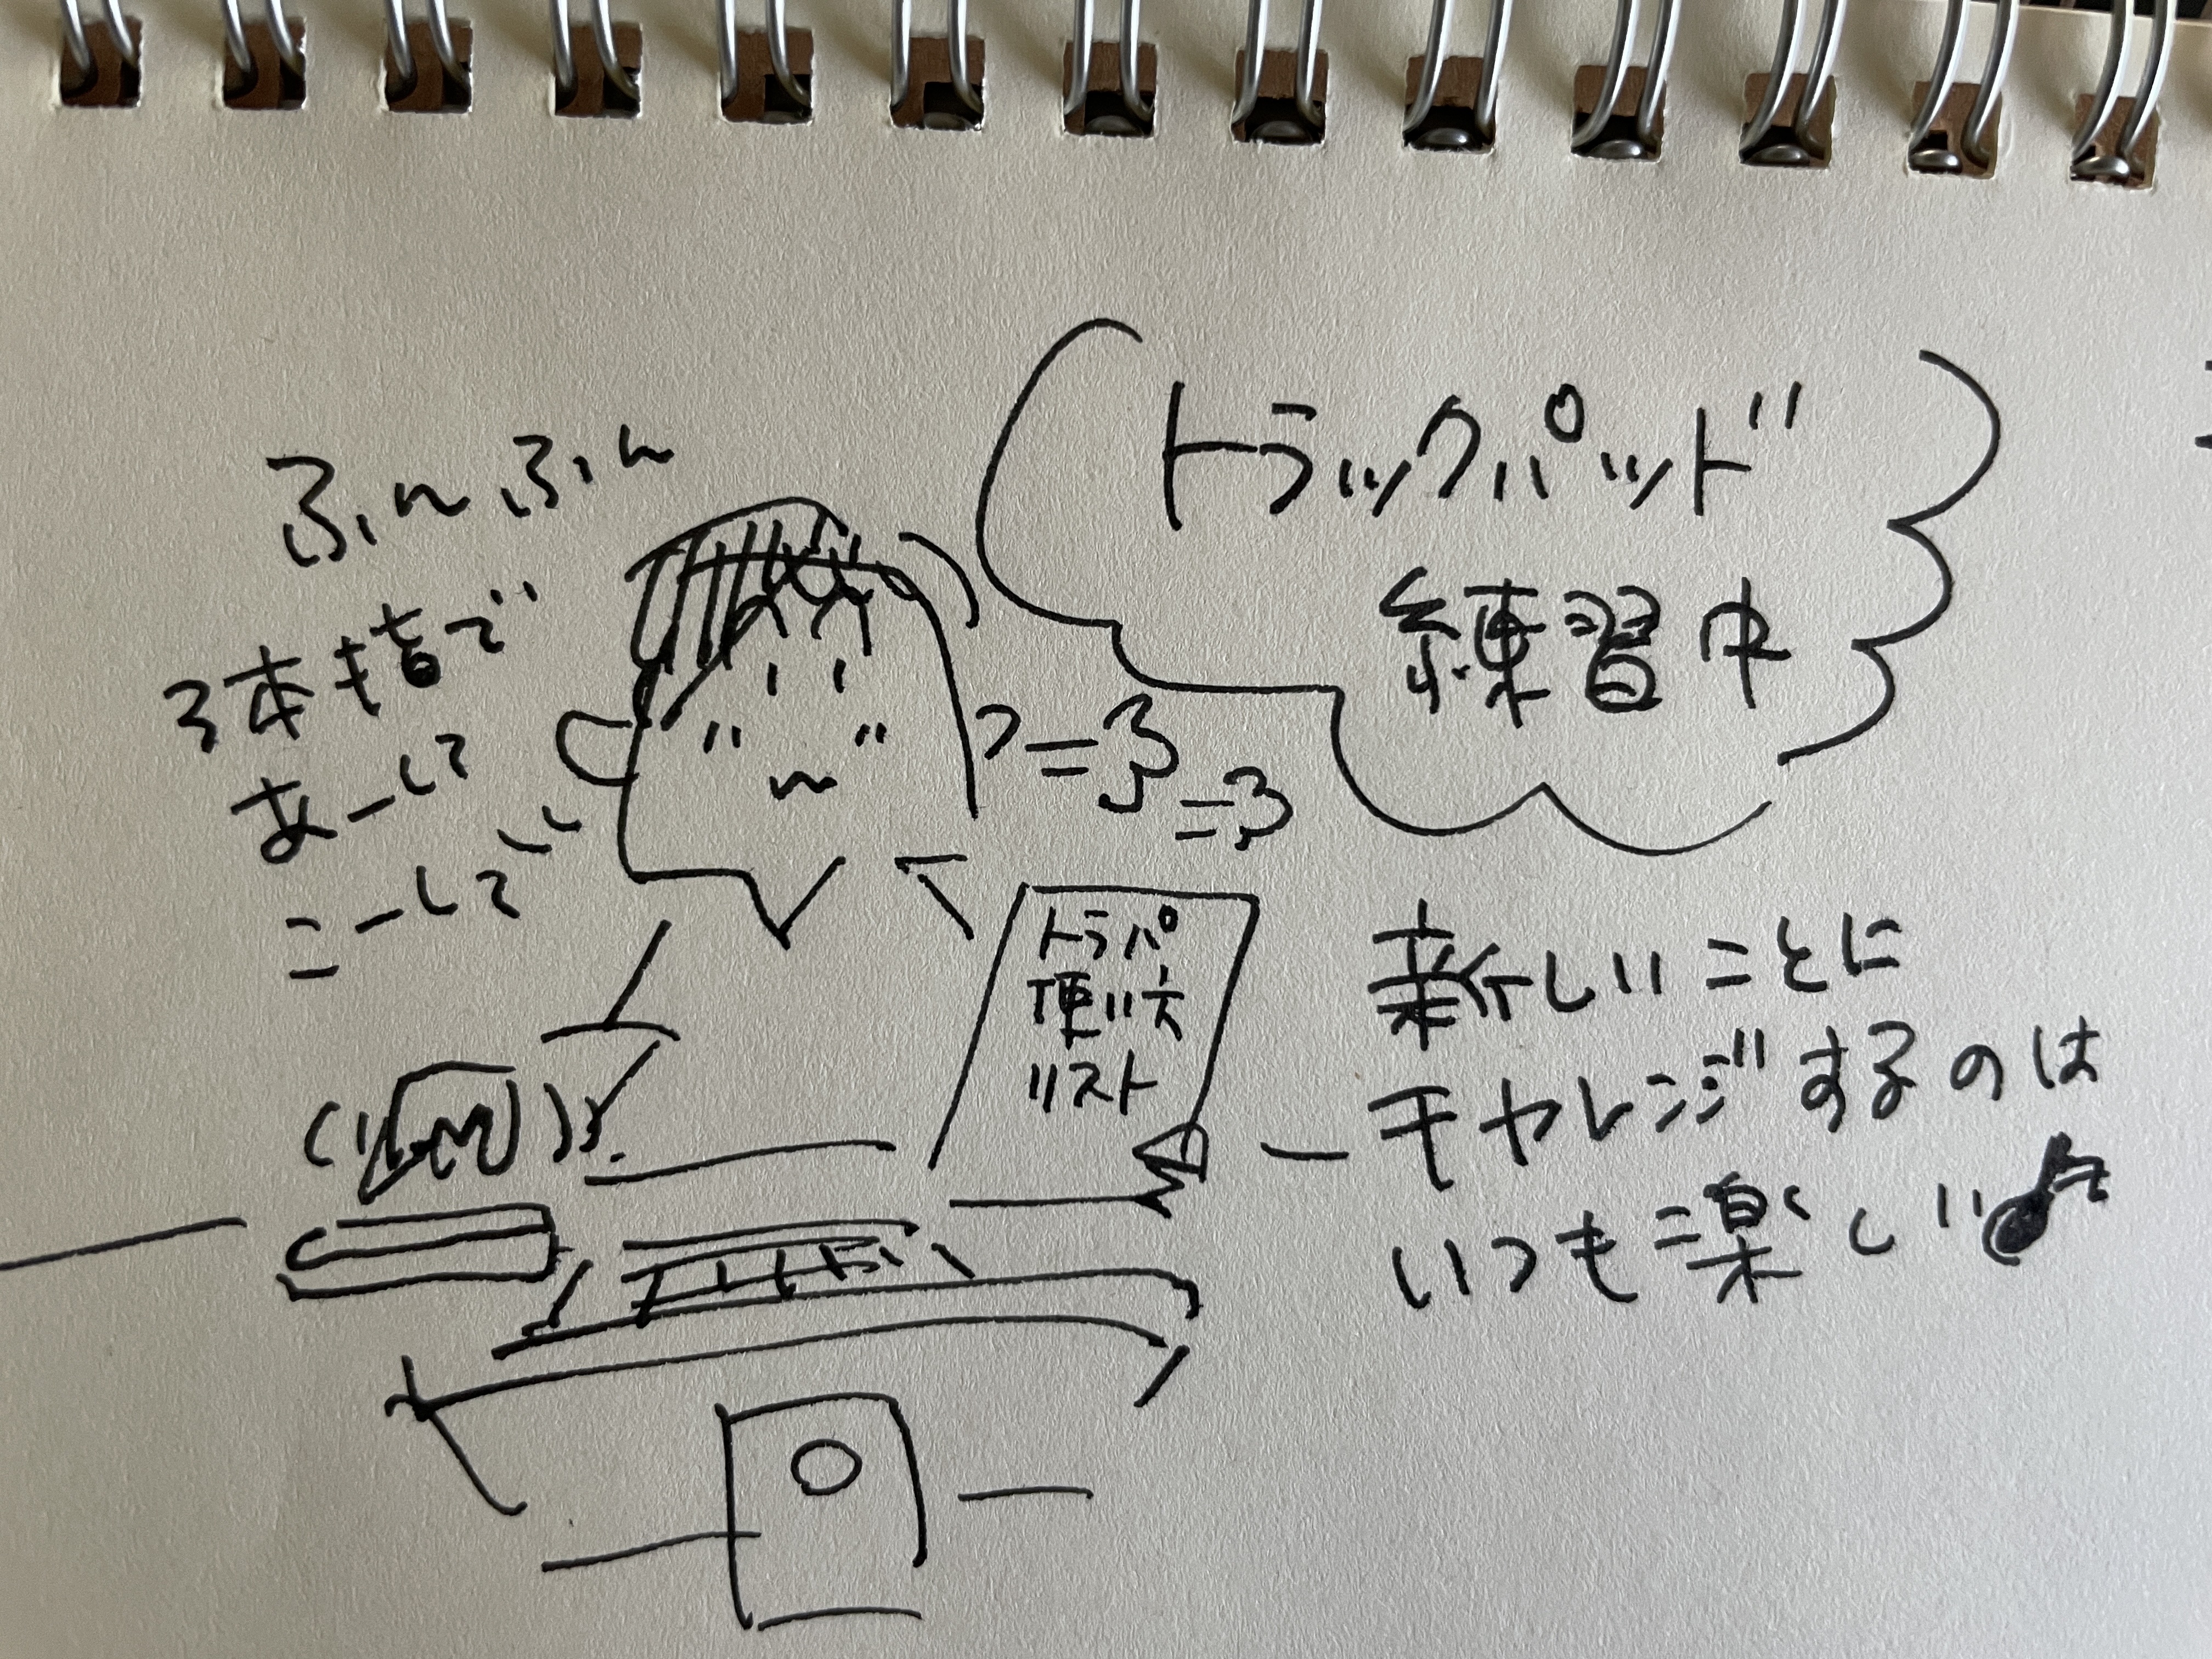 ふんふん
3本指で
あーして
こーして
トラックパッド
練習中
=3
=3
トラパ
使い方
リスト
新しいことに
チャレンジするのは
いつも楽しい♪